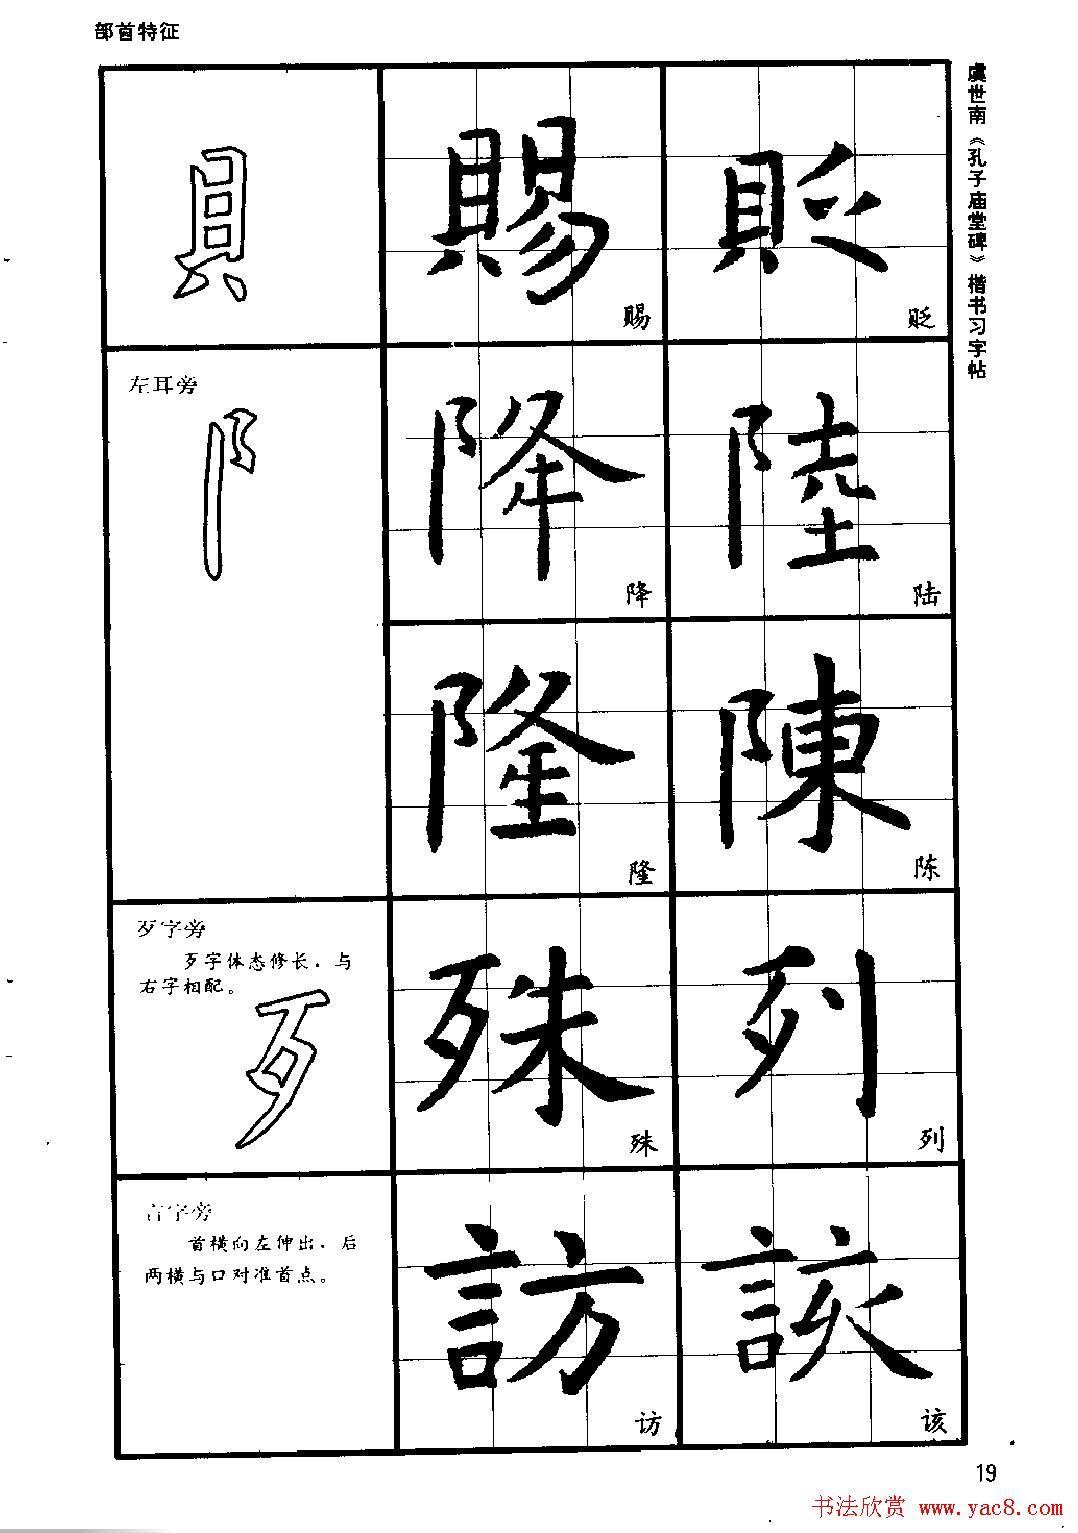 部首特征
虞世南《孔子庙堂碑》楷书习字帖
貝
賜
赐
貶
贬
左耳旁
阝
降
降
陸
陆
隆
隆
陳
陈
歹字旁
歹字体态修长，与
右字相配。
歹
殊
殊
列
列
言字旁
首横向左伸出，后
两横与口对准首点。
訪
访
該
该
19
书法欣赏 www.yac8.com